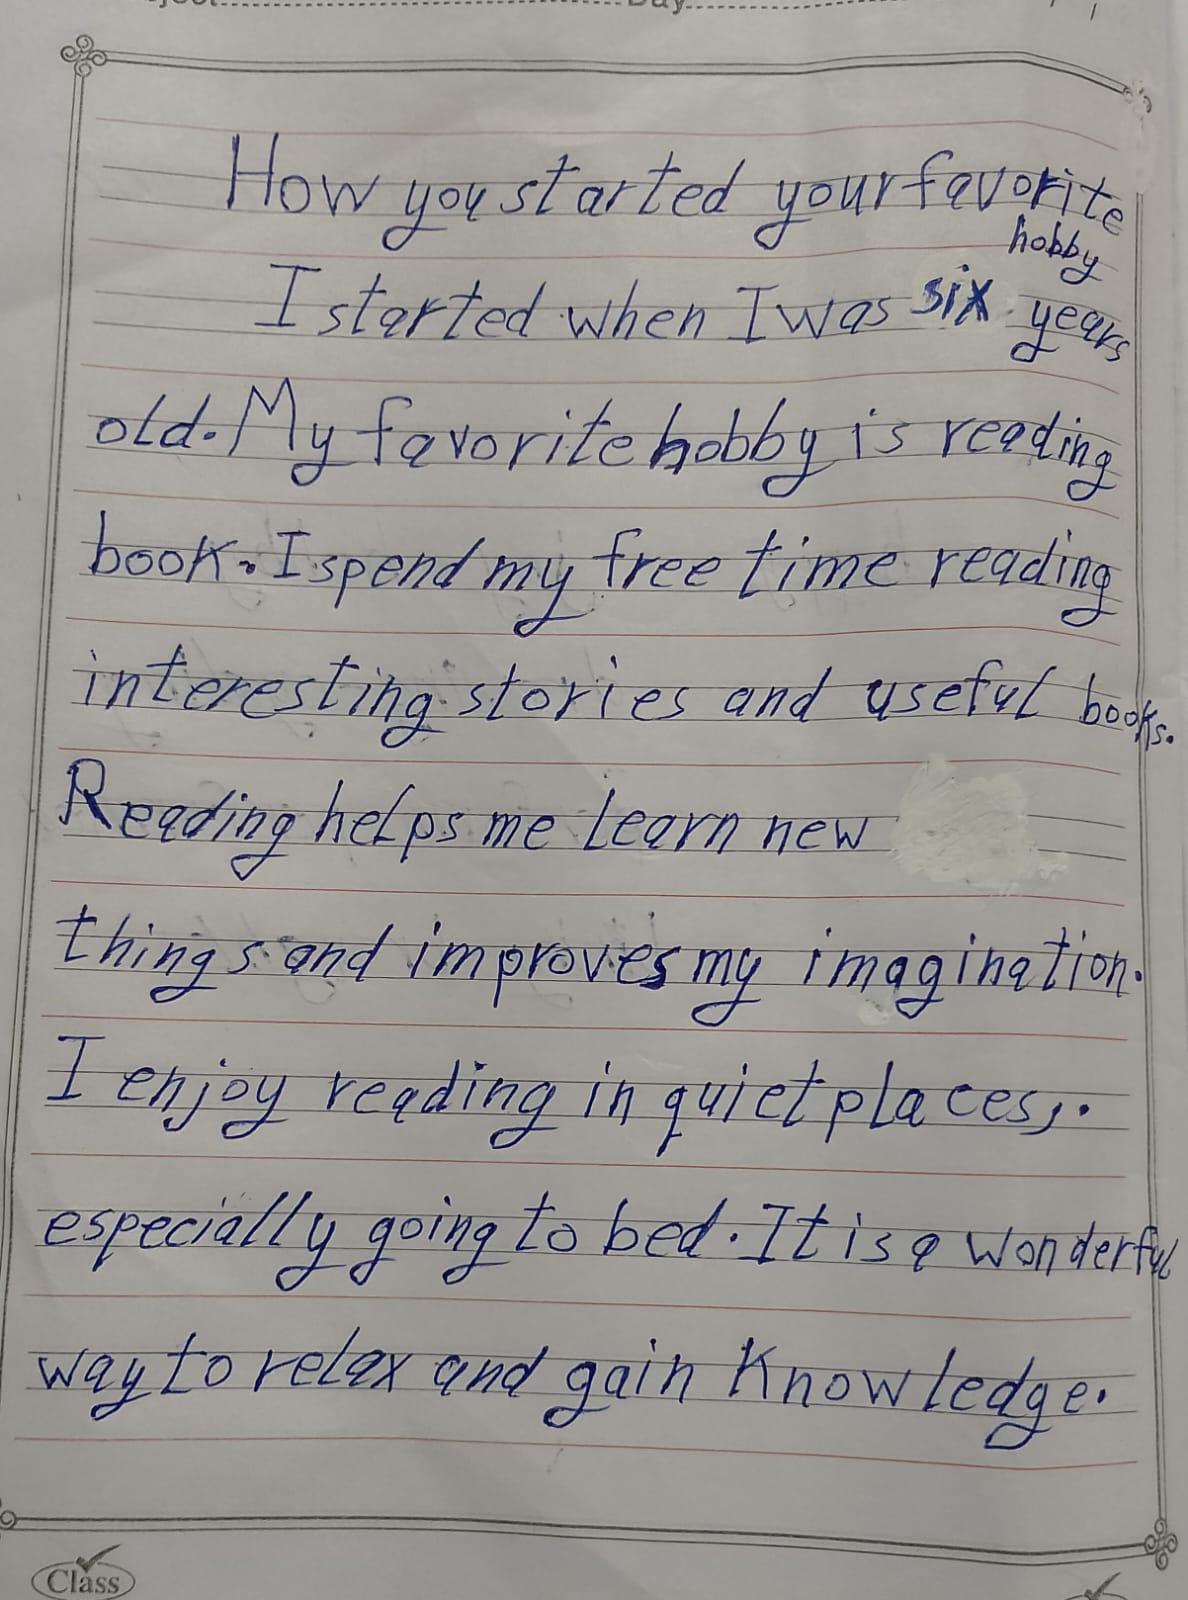 Day
How you started your favorite
hobby
I started when I was six years
old. My favorite hobby is reading
book. I spend my free time reading
interesting stories and useful books.
Reading helps me learn new
things and improves my imagination.
I enjoy reading in quiet places,.
especially going to bed. It is a wonderful
way to relax and gain knowledge.
Class